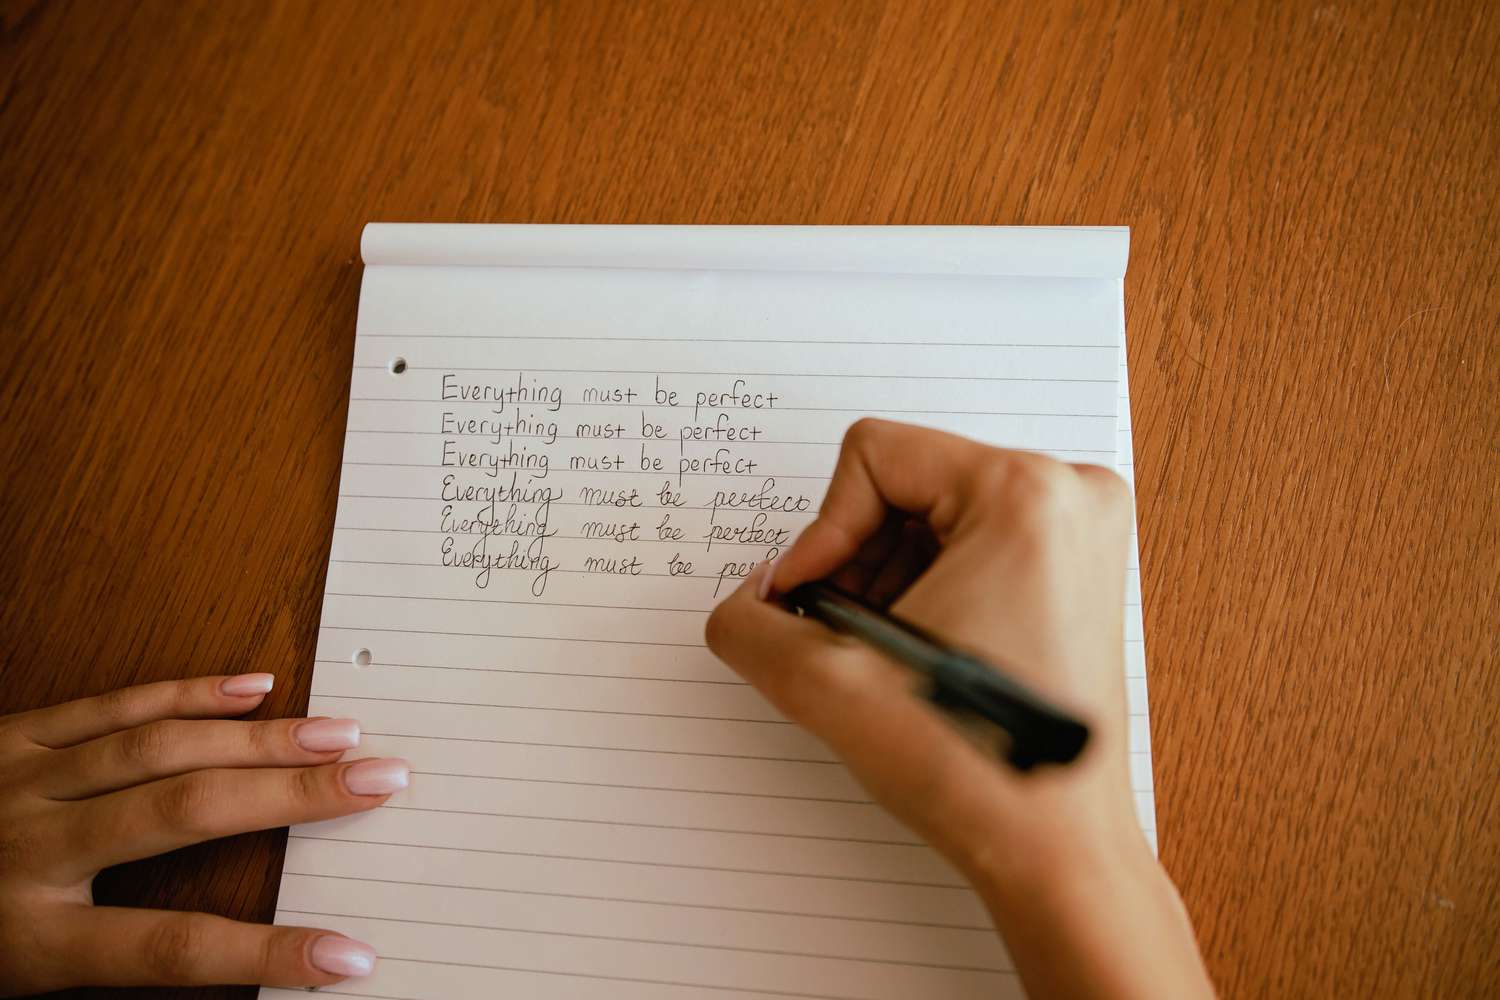 Everything must be perfect
Everything must be perfect
Everything must be perfect
Everything must be perfect
Everything must be perfect
Everything must be